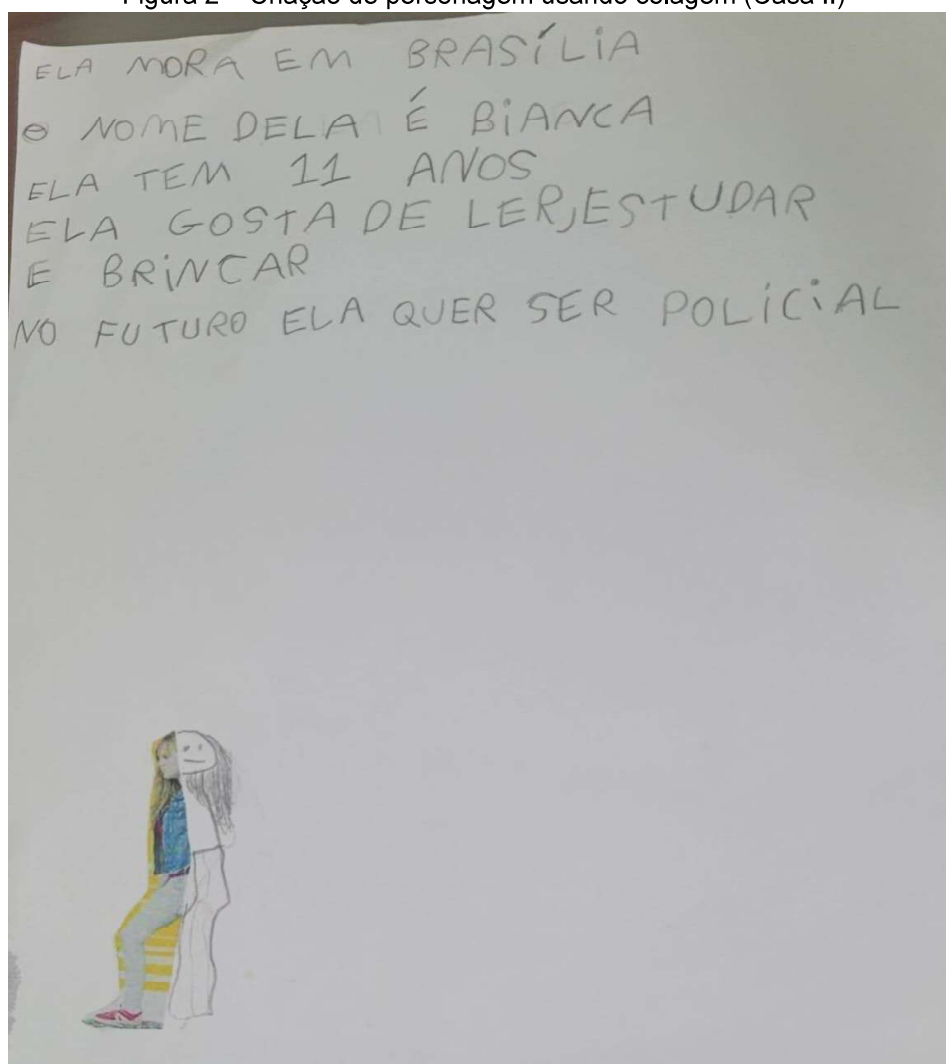 Figura 2 – Criação de personagem usando colagem (Casa II)
ELA MORA EM BRASÍLIA
O NOME DELA É BIANCA
ELA TEM 11 ANOS
ELA GOSTA DE LER, ESTUDAR
E BRINCAR
NO FUTURO ELA QUER SER POLICIAL